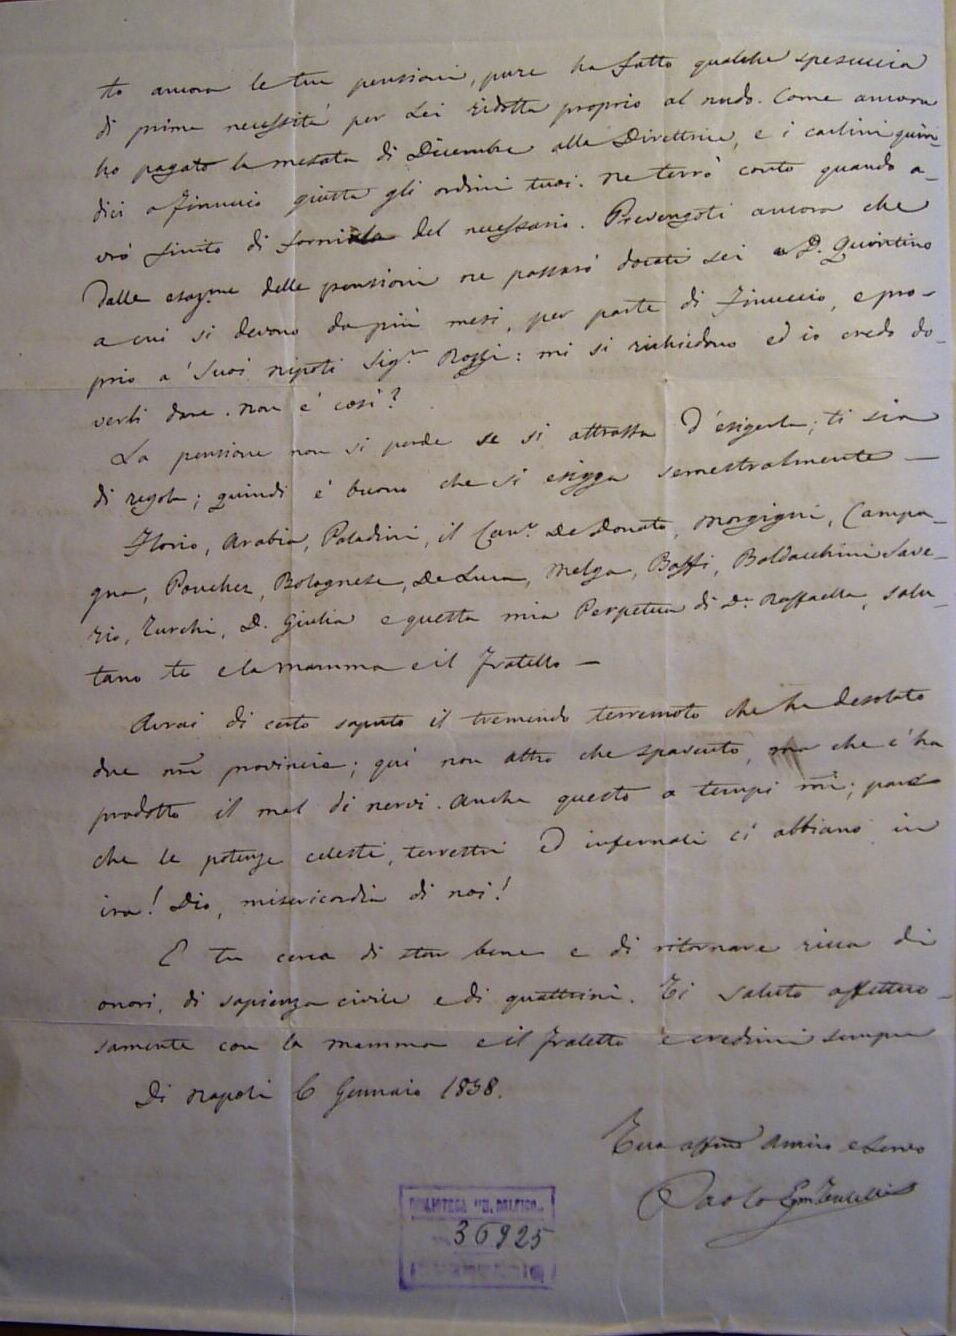 to ancora le tue pensioni, pure ha fatto qualche spesuccia
di prima necessità per Lei ridotta proprio al nudo. Come ancora
ho pagato la mesata di Dicembre alla Direttrice, e i carlini quin-
dici a Zinuccio giusta gli ordini tuoi. Ne terrò conto quando a-
vrò finito di fornirla del necessario. Prevengoti ancora che
dalle esazne delle pensioni ne passarò docati sei a D. Quintino
a cui si devono da più mesi, per parte di Zinuccio, e pro-
prio a' suoi nipoti Sigri Rossi: mi si richiedono ed io credo do-
verli dare. Non è così?
La pensione non si perde se si attrassa d'esigerla; ti sia
di regola; quindi è buono che si esigga semestralmente —
Florio, Arabia, Paladini, il Cavr. De Donato, Morgigni, Campa-
gna, Pouchez, Bolognese, De Luca, Melga, Baffi, Baldacchini Save-
rio, Turchi, D. Giulia e questa mia Perpetua di Da. Raffaella, salu-
tano te e la mamma e il fratello —
Avrai di certo saputo il tremendo terremoto che ha desolato
due nre provincie; qui non altro che spavento, ma che ci ha
prodotto il mal di nervi. Anche questo a tempi nri; pare
che le potenze celesti, terrestri ed infernali ci abbiano in
ira! Dio, misericordia di noi!
E tu cerca di star bene e di ritornare ricca di
onori, di sapienza civile e di quattrini. Ti saluto affettuo-
samente con la mamma e il fratello e credimi sempre
Di Napoli 6 Gennaio 1858.
Tuo affmo Amico e
Paolo Em.
BIBLIOTECA "M. DELFICO"
36925